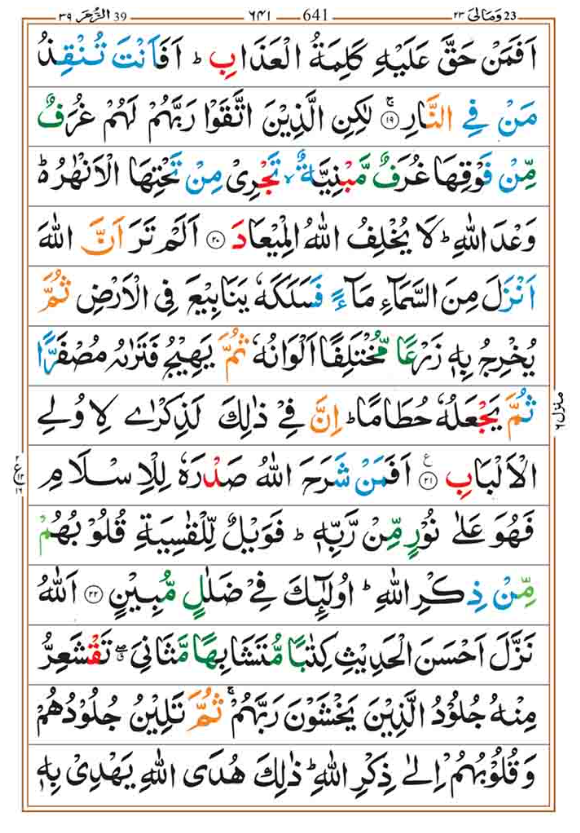 23 وَمَالِيَ ٢٣ — 641 — ٦٤١ — 39 اَلزُّمَر ٣٩
اَفَمَنْ حَقَّ عَلَيْهِ كَلِمَةُ الْعَذَابِ ؕ اَفَاَنْتَ تُنْقِذُ
مَنْ فِي النَّارِ ۚ ۝١٩ لٰكِنِ الَّذِيْنَ اتَّقَوْا رَبَّهُمْ لَهُمْ غُرَفٌ
مِّنْ فَوْقِهَا غُرَفٌ مَّبْنِيَّةٌ ۙ تَجْرِيْ مِنْ تَحْتِهَا الْاَنْهٰرُ ؕ
وَعْدَ اللّٰهِ ؕ لَا يُخْلِفُ اللّٰهُ الْمِيْعَادَ ۝٢٠ اَلَمْ تَرَ اَنَّ اللّٰهَ
اَنْزَلَ مِنَ السَّمَآءِ مَآءً فَسَلَكَهٗ يَنَابِيْعَ فِي الْاَرْضِ ثُمَّ
يُخْرِجُ بِهٖ زَرْعًا مُّخْتَلِفًا اَلْوَانُهٗ ثُمَّ يَهِيْجُ فَتَرٰىهُ مُصْفَرًّا
ثُمَّ يَجْعَلُهٗ حُطَامًا ؕ اِنَّ فِيْ ذٰلِكَ لَذِكْرٰى لِاُولِي
الْاَلْبَابِ ۝٢١ ع اَفَمَنْ شَرَحَ اللّٰهُ صَدْرَهٗ لِلْاِسْلَامِ
فَهُوَ عَلٰى نُوْرٍ مِّنْ رَّبِّهٖ ؕ فَوَيْلٌ لِّلْقٰسِيَةِ قُلُوْبُهُمْ
مِّنْ ذِكْرِ اللّٰهِ ؕ اُولٰٓئِكَ فِيْ ضَلٰلٍ مُّبِيْنٍ ۝٢٢ اَللّٰهُ
نَزَّلَ اَحْسَنَ الْحَدِيْثِ كِتٰبًا مُّتَشَابِهًا مَّثَانِيَ ۖۗ تَقْشَعِرُّ
مِنْهُ جُلُوْدُ الَّذِيْنَ يَخْشَوْنَ رَبَّهُمْ ۚ ثُمَّ تَلِيْنُ جُلُوْدُهُمْ
وَقُلُوْبُهُمْ اِلٰى ذِكْرِ اللّٰهِ ؕ ذٰلِكَ هُدَى اللّٰهِ يَهْدِيْ بِهٖ
منزل ٦